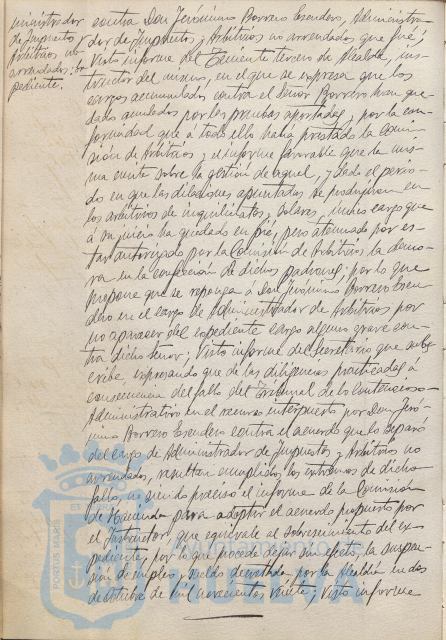 ministrador
de Impuestos y
Arbitrios no
arrendados: ex
pediente.
contra Don Jerónimo Borrero Escudero, Administra-
dor de Impuestos y Arbitrios no arrendados que fué;
Visto informe del Teniente tercero de Alcalde, ins-
tructor del mismo, en el que se expresa que los
cargos acumulados contra el Señor Borrero han que-
dado anulados por las pruebas aportadas, y por la con-
formidad que a todo ello había prestado la Comi-
sión de Arbitrios y el informe favorable que la mis-
ma emite sobre la gestión de aquel, y dado el perio-
do en que las dilaciones apuntadas se produjeron en
los arbitrios de inquilinatos, solares, único cargo que
á su juicio ha quedado en pié, pero atenuado por es-
tar autorizado por la Comisión de Arbitrios la demo-
ra en la confección de dichos padrones; por lo que
propone que se reponga á Don Jerónimo Borrero Escu-
dero en el cargo de Administrador de Arbitrios por
no aparecer del expediente cargo alguno grave con-
tra dicho señor; Visto informe del Secretario que subs-
cribe, expresando que de las diligencias practicadas á
consecuencia del fallo del Tribunal de lo Contencioso
Administrativo en el recurso interpuesto por Don Jeró-
nimo Borrero Escudero contra el acuerdo que lo separó
del cargo de Administrador de Impuestos y Arbitrios no
arrendados, resultan cumplidos los extremos de dicho
fallo, no siendo preciso el informe de la Comisión
de Hacienda para adoptar el acuerdo propuesto por
el Instructor, que equivale al sobreseimiento del ex-
pediente, por lo que procede dejar sin efecto la suspen-
sión de empleo y sueldo decretada por la Alcaldía en dos
de Octubre de mil novecientos veinte; Visto informe
PORTUS MARIS
HUELVA